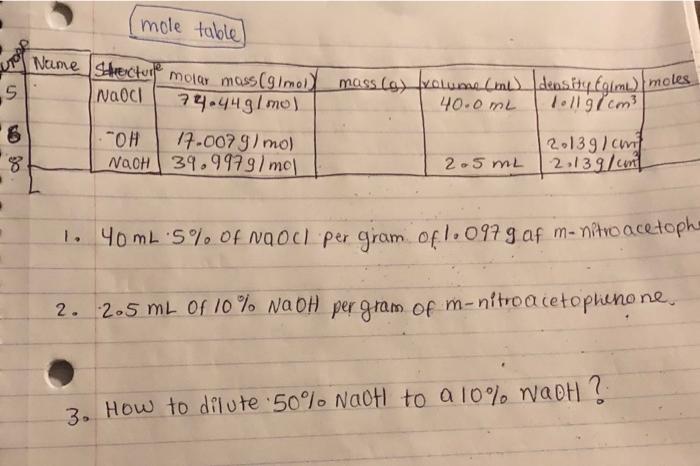 mole table
Name Structure molar mass (g/mol) mass (g) volume (mL) density (g/mL) moles
5 NaOCl 74.44g/mol 40.0 mL 1.11g/cm³
6 ⁻OH 17.007g/mol 2.13g/cm³
8 NaOH 39.997g/mol 2.5 mL 2.13g/cm³
1. 40mL 5% of NaOCl per gram of 1.097g of m-nitroacetoph
2. 2.5 mL of 10% NaOH per gram of m-nitroacetophenone.
3. How to dilute 50% NaOH to a 10% NaOH?